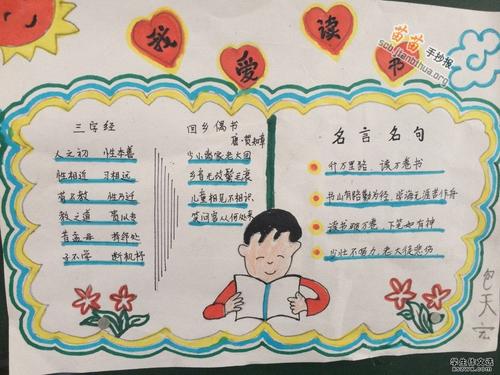 我爱读书
苗苗手抄报
scb.jianbihua.org
三字经
人之初 性本善
性相近 习相远
苟不教 性乃迁
教之道 贵以专
昔孟母 择邻处
子不学 断机杼
回乡偶书
唐·贺知章
少小离家老大回
乡音无改鬓毛衰
儿童相见不相识
笑问客从何处来
名言名句
行万里路，读万卷书
书山有路勤为径，学海无涯苦作舟
读书破万卷，下笔如有神
少壮不努力，老大徒悲伤
包天宏
学生作文选
xszwx.com